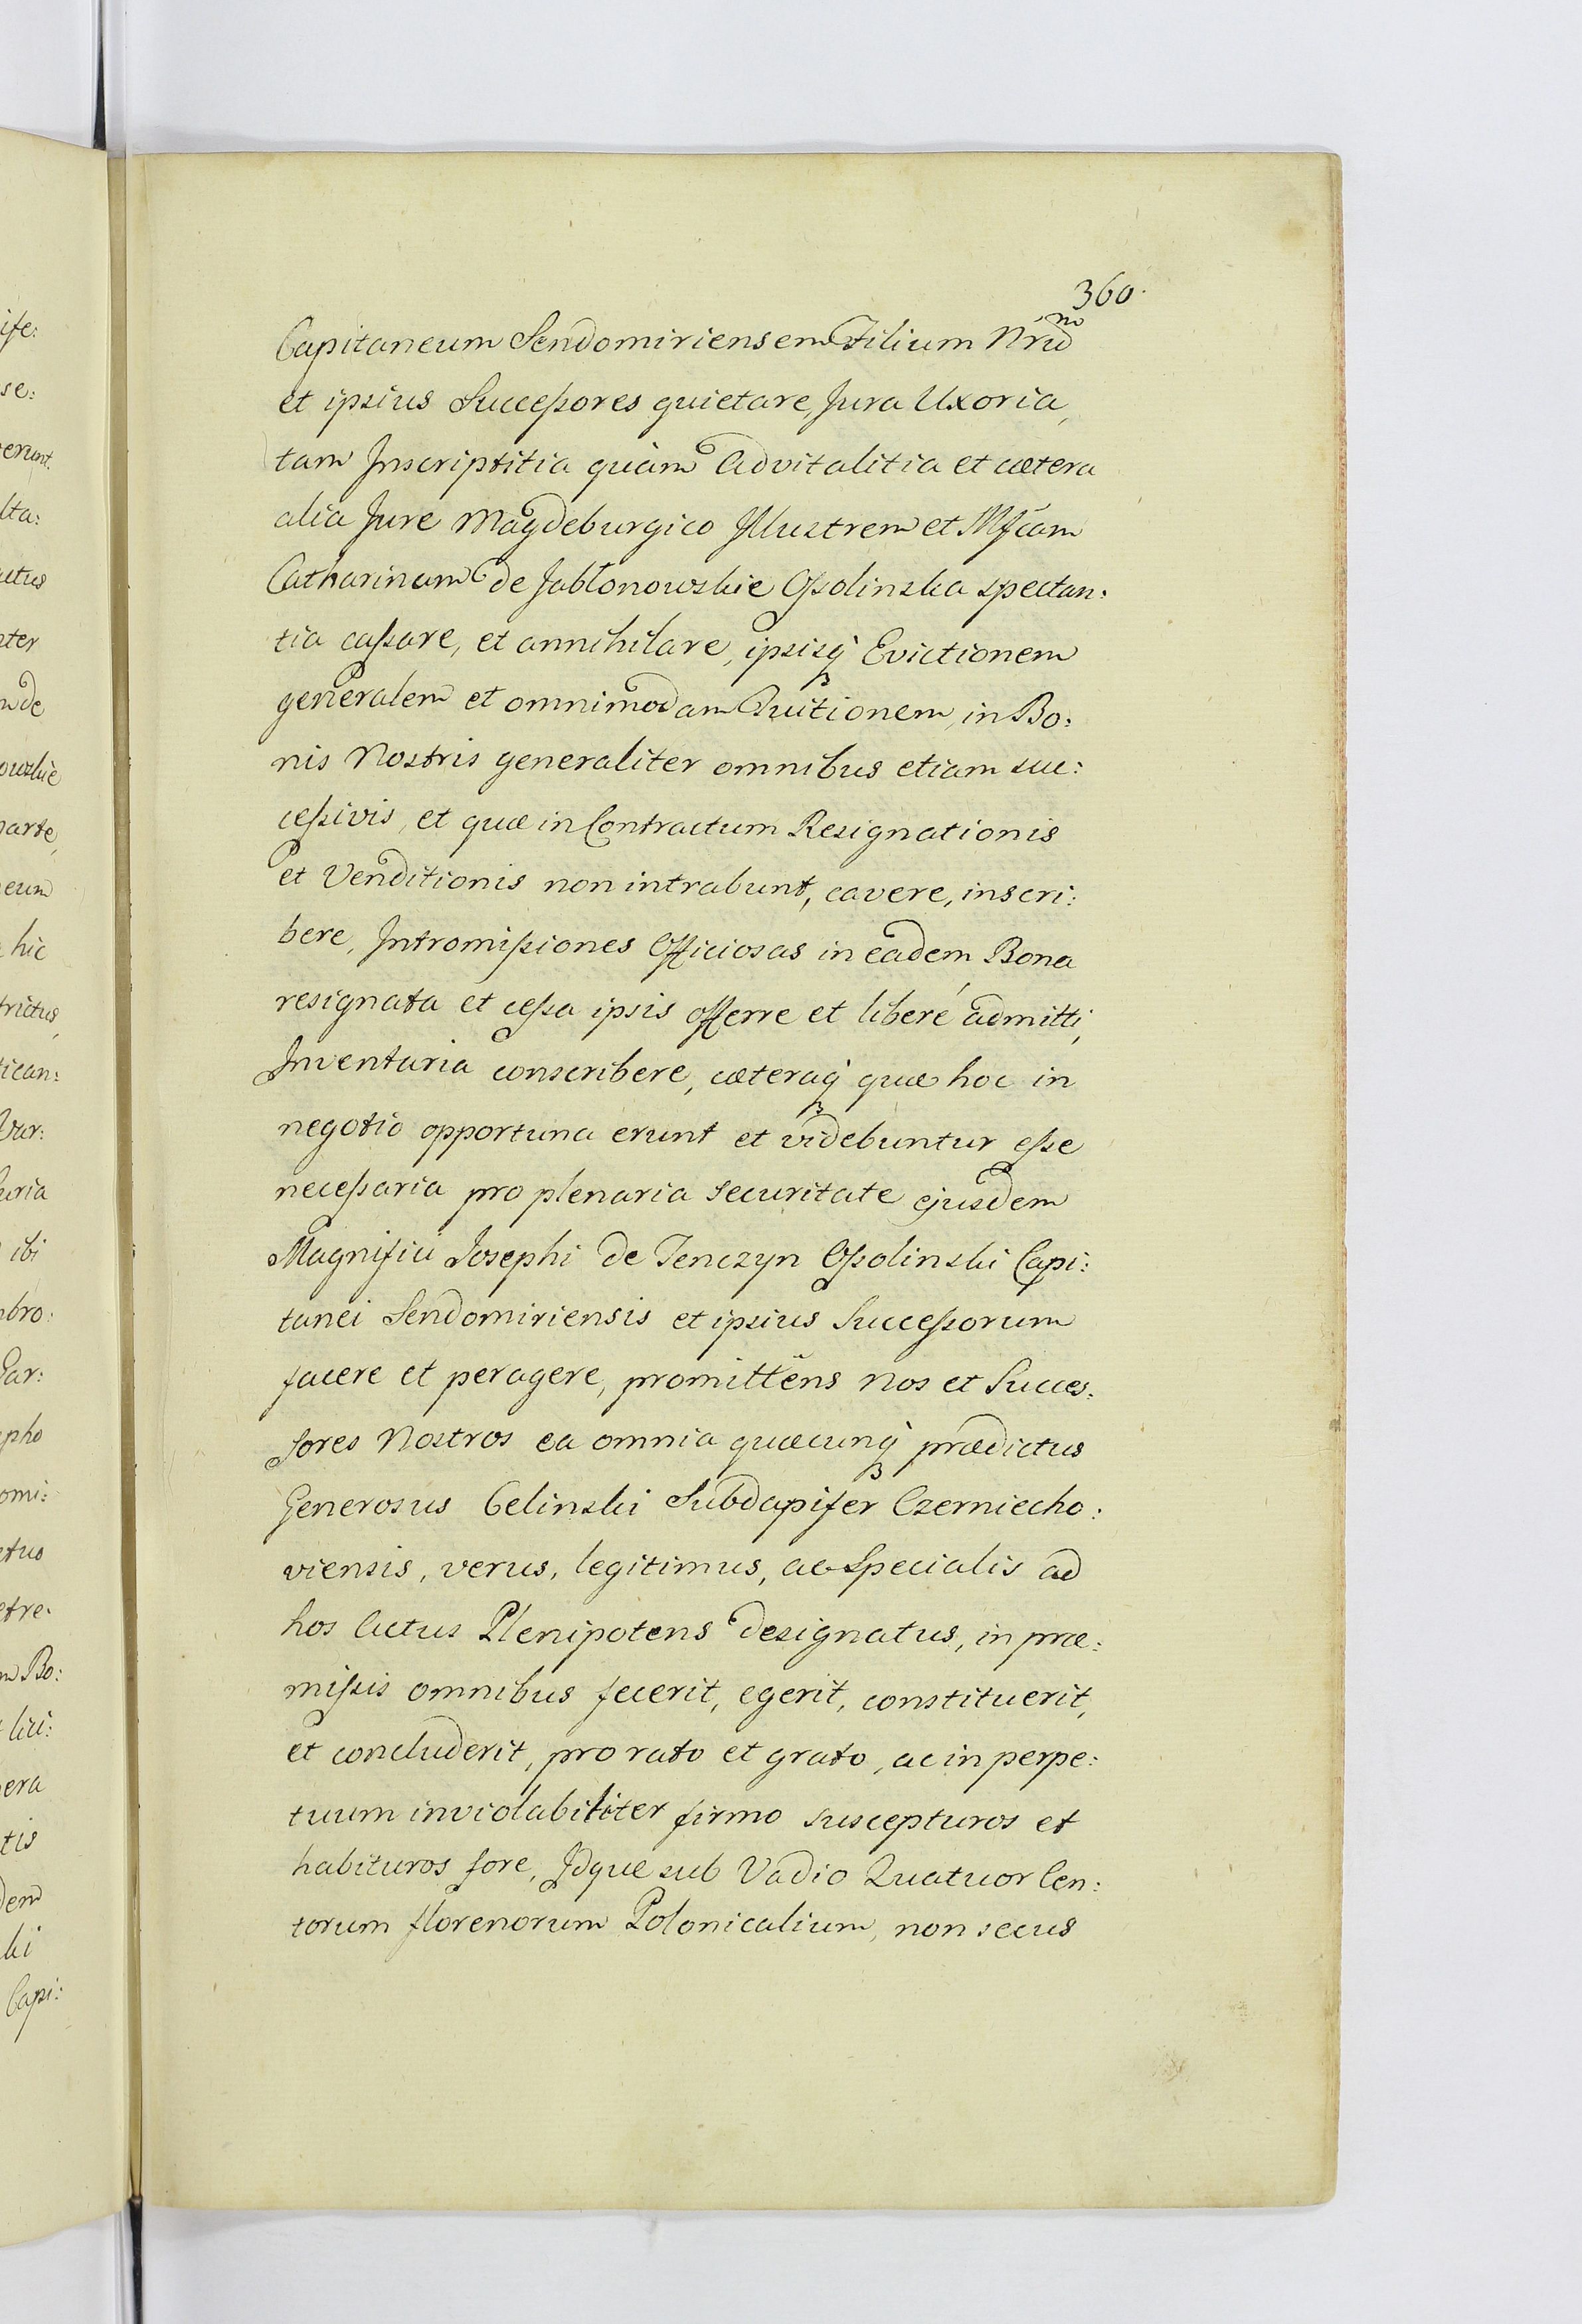 360.
Capitaneum Sendomiriensem Filium Nrũm
et ipsius Succeſsores quietare, Jura Uxoria,
tam Inscriptitia quàm Advitalitia et cætera
alia Jure Magdeburgico Illustrem et Mfcam
Catharinam de Jabłonowskie Oſsolinska spectan:
tia caſsare, et annihilare, ipsisq́ꝫ Evictionem
generalem et omnimodam Tuitionem, in Bo:
nis Nostris generaliter omnibus etiam suc:
ceſsivis, et quæ in Contractum Resignationis
et Venditionis non intrabunt, cavere, inscri:
bere, Intromiſsiones Officiosas in eadem Bona
resignata et ceſsa ipsis offerre et liberé admitti,
Inventaria conscribere, cæteraq́ꝫ quæ hoc in
negotio opportuna erunt et videbuntur eſse
neceſsaria pro plenaria securitate ejusdem
Magnifici Josephi de Tenczyn Oſsolinski Capi:
tanei Sendomiriensis et ipsius Succeſsorum
facere et peragere, promitteñs Nos et Succes:
sores Nostros ea omnia quæcunq́ꝫ prædictus
Generosus Celinski Subdapifer Czerniecho:
viensis, verus, legitimus, ac Specialis ad
hos Actus Plenipotens designatus, in præ:
miſsis omnibus fecerit, egerit, constituerit,
et concluderit, pro rato et grato, ac in perpe:
tuum inviolabiliter firmo suscepturos et
habituros fore, Idque sub Vadio Quatuor Cen:
torum florenorum Polonicalium, non secus
ife:
se:
erunt.
lta:
ctus
nter
nde
owskie
parte,
eum
hic
trictus,
tican:
Var:
uria
ibi
nbro:
Par:
epho
omi:
ctus
etre:
m Bo:
lici:
pera
tis
dem
ski
Capi: